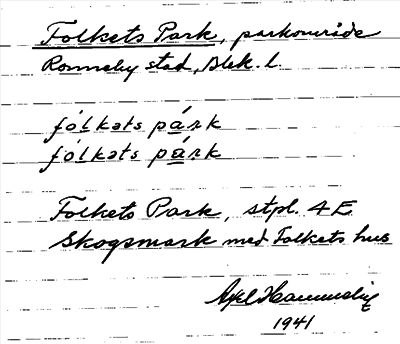 Folkets Park, parkområde
Ronneby stad, Blek. l.
fólkəts párk
fólkəts párk
Folkets Park, stpl. 4E
Skogsmark med Folkets hus
Axel
1941